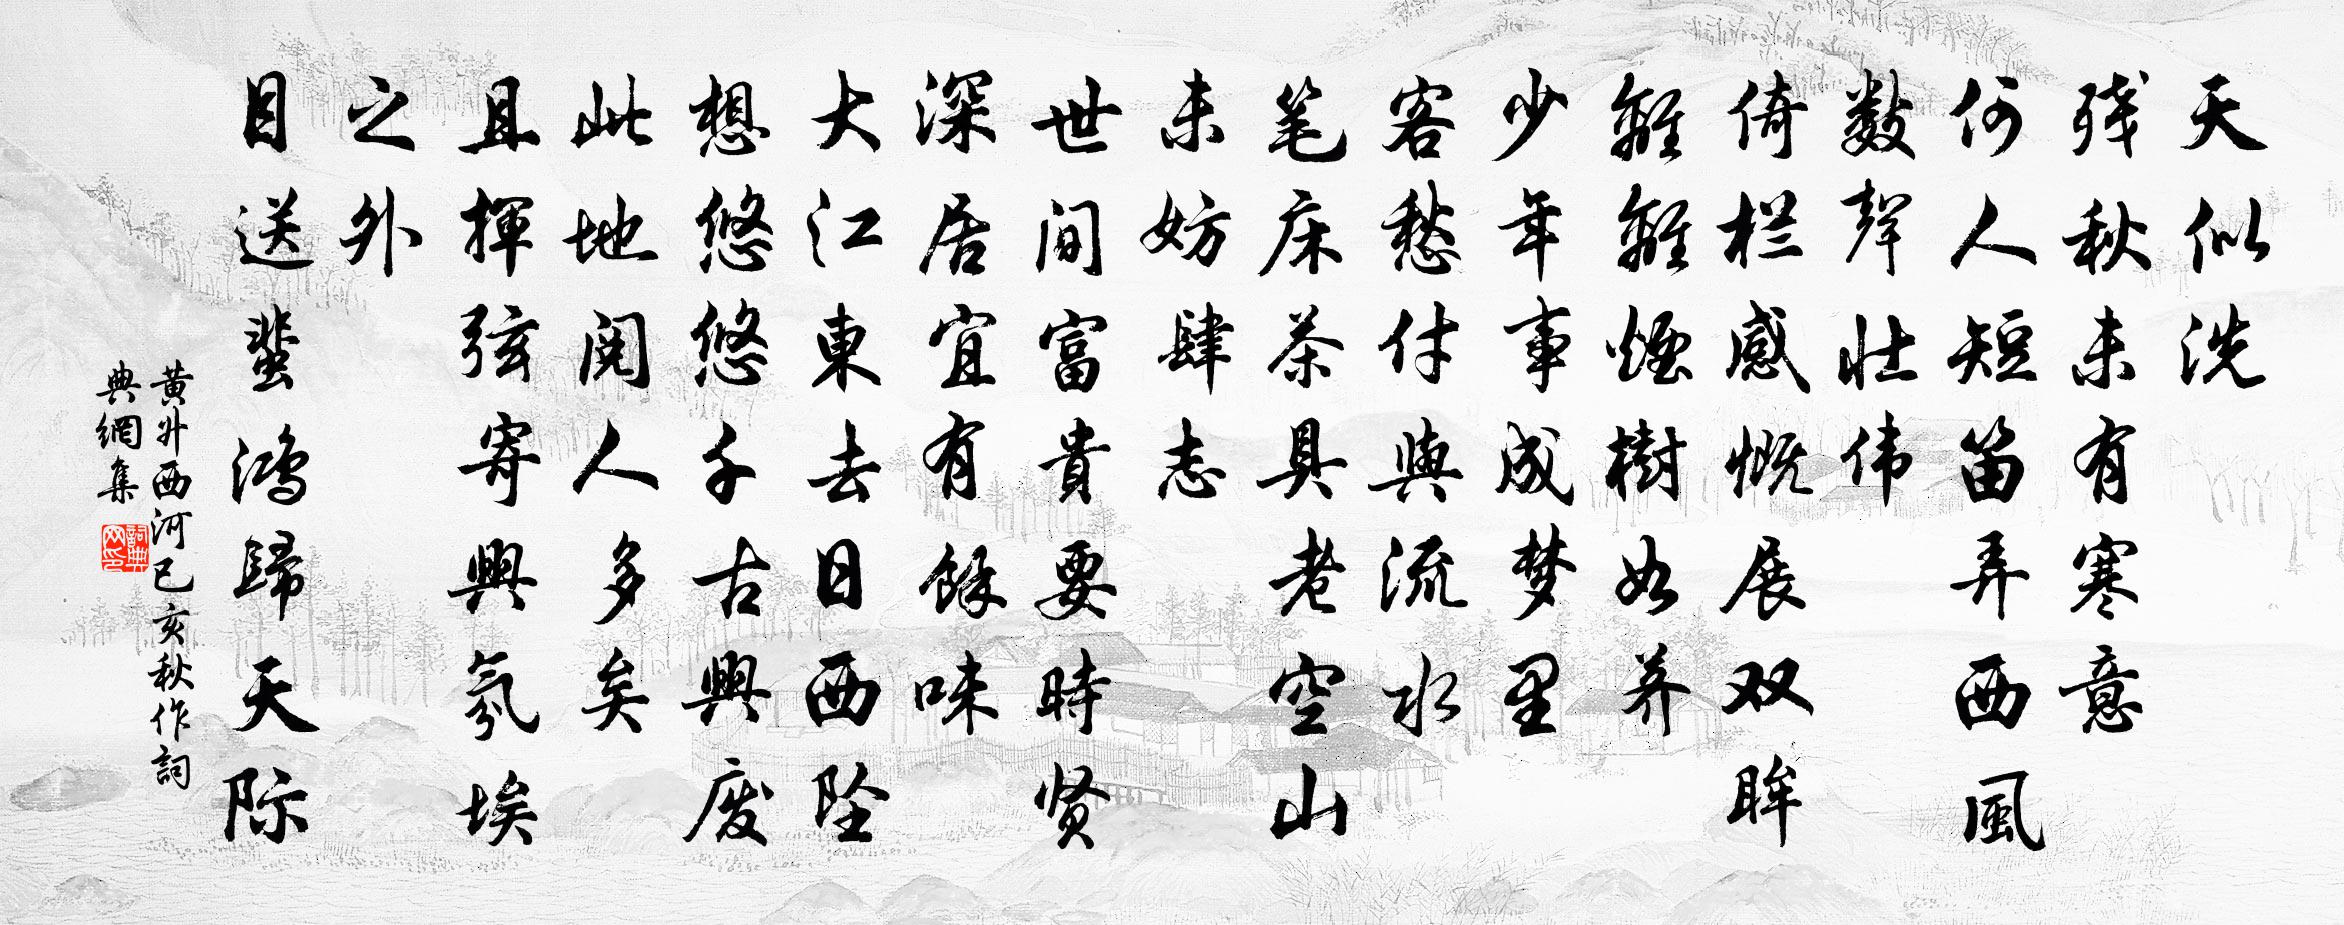 天似洗
残秋未有寒意
何人短笛弄西風
数聲壮伟
倚栏感慨展双眸
離離煙樹如荠
少年事成梦里
客愁付與流水
笔床茶具老空山
未妨肆志
世间富貴要時贤
深居宜有餘味
大江東去日西坠
想悠悠千古興废
此地阅人多矣
且揮弦寄興氛埃
之外
目送蜚鸿歸天际
黄升西河己亥秋作詞
典網集
詞典网印